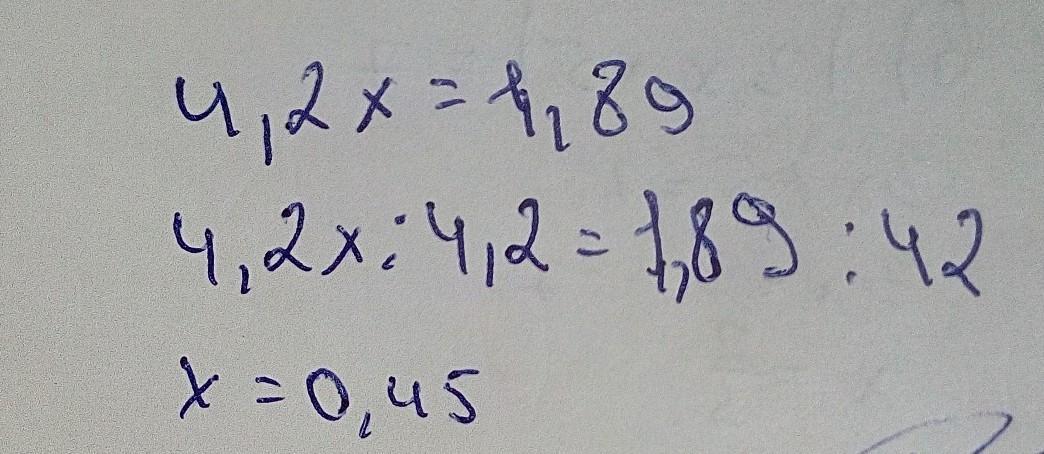 4,2x=1,89
4,2x:4,2=1,89:42
x=0,45